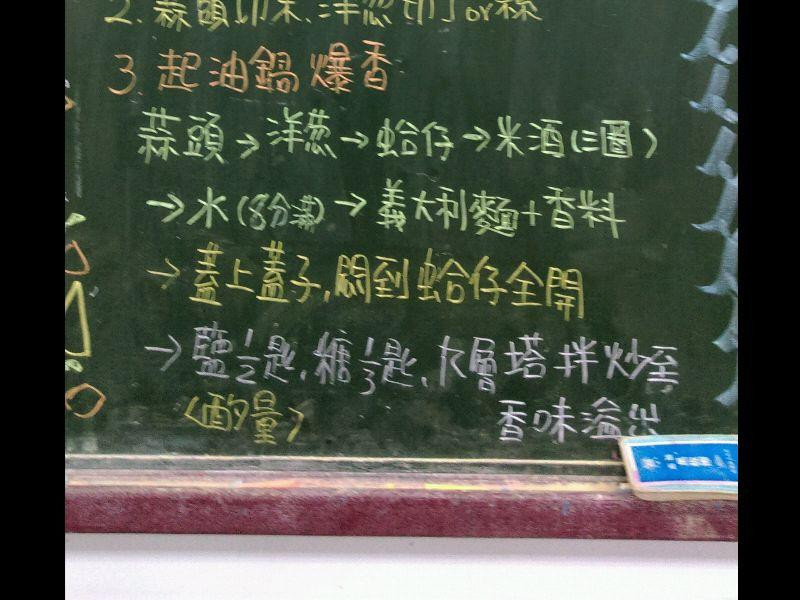 2. 蒜頭切末、洋蔥切丁or絲
3. 起油鍋爆香
蒜頭→洋蔥→蛤仔→米酒(三圈)
→水(8分滿)→義大利麵+香料
→蓋上蓋子,悶到蛤仔全開
→鹽½匙、糖⅓匙、九層塔拌炒至
(酌量) 香味溢出